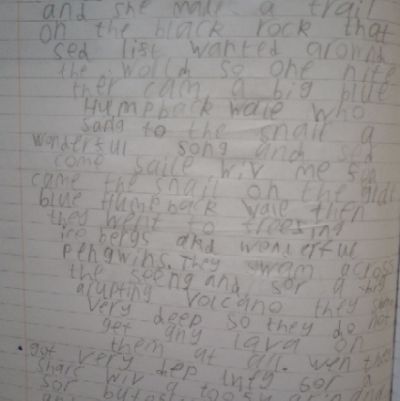 and she made a trail
on the black rock that
sed list wanted around
the world so one nite
ther cam a big blue
Humpback wale who
sang to the snail a
wonderful song and sed
come saile wiv me so
came the snail on the
blue Humpback wale then
they went to freesing
ice bergs and wonderful
pengwins. They swam across
the seeng and sor a big
arupting volcano they swam
very deep so they do not
get any lava on
them at all. wen they
got very dep they sor a
shark wiv a
sor